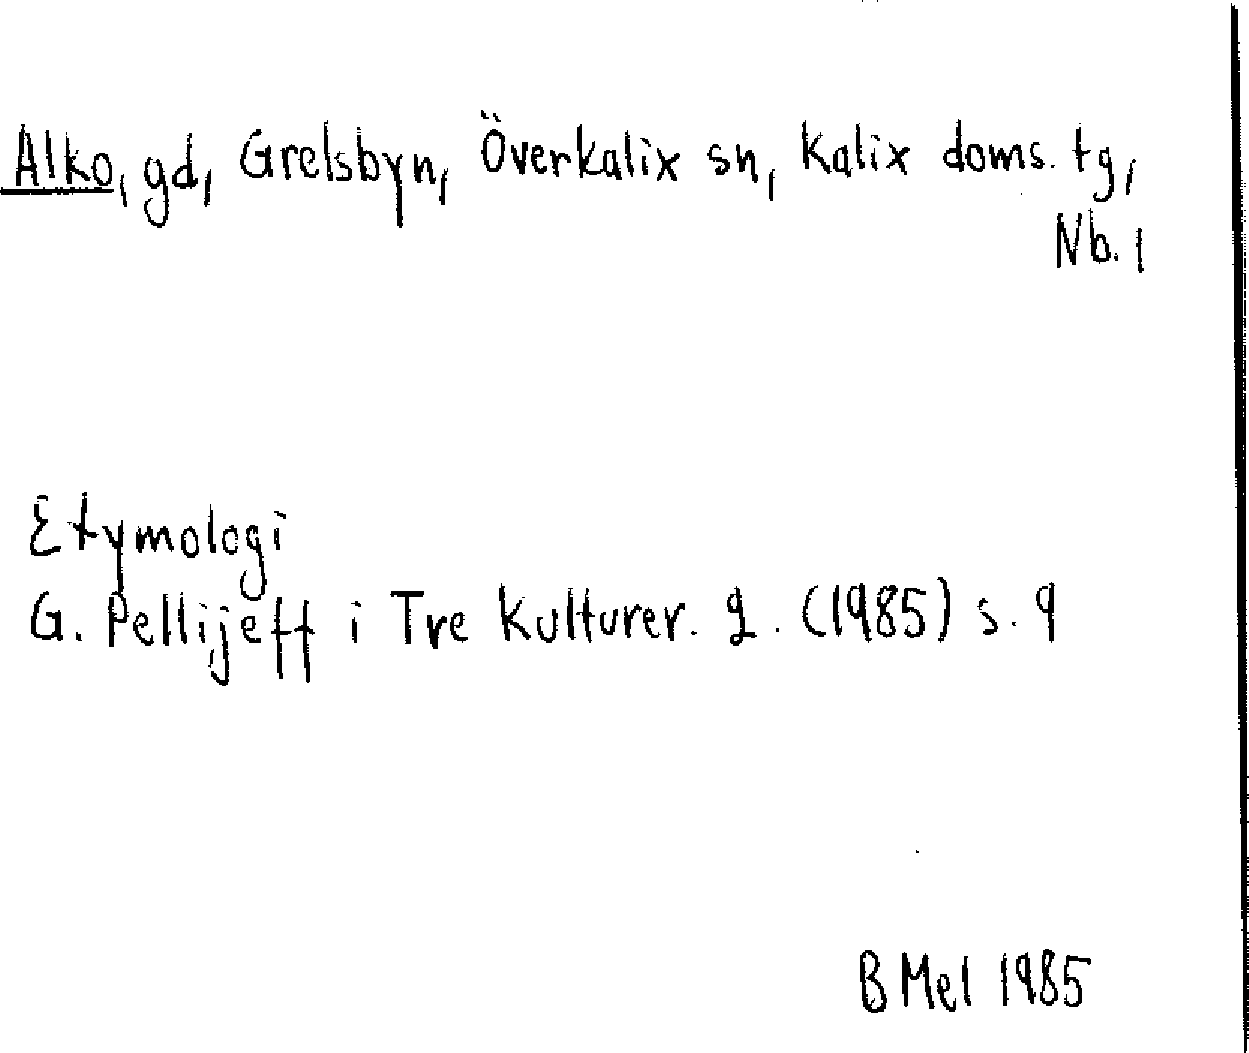 Alko, gd, Grelsbyn, Överkalix sn, Kalix doms. tg,
Nb.,
Etymologi
G. Pellijeff i Tre Kulturer. 2. (1985) s. 9
B Mel 1985